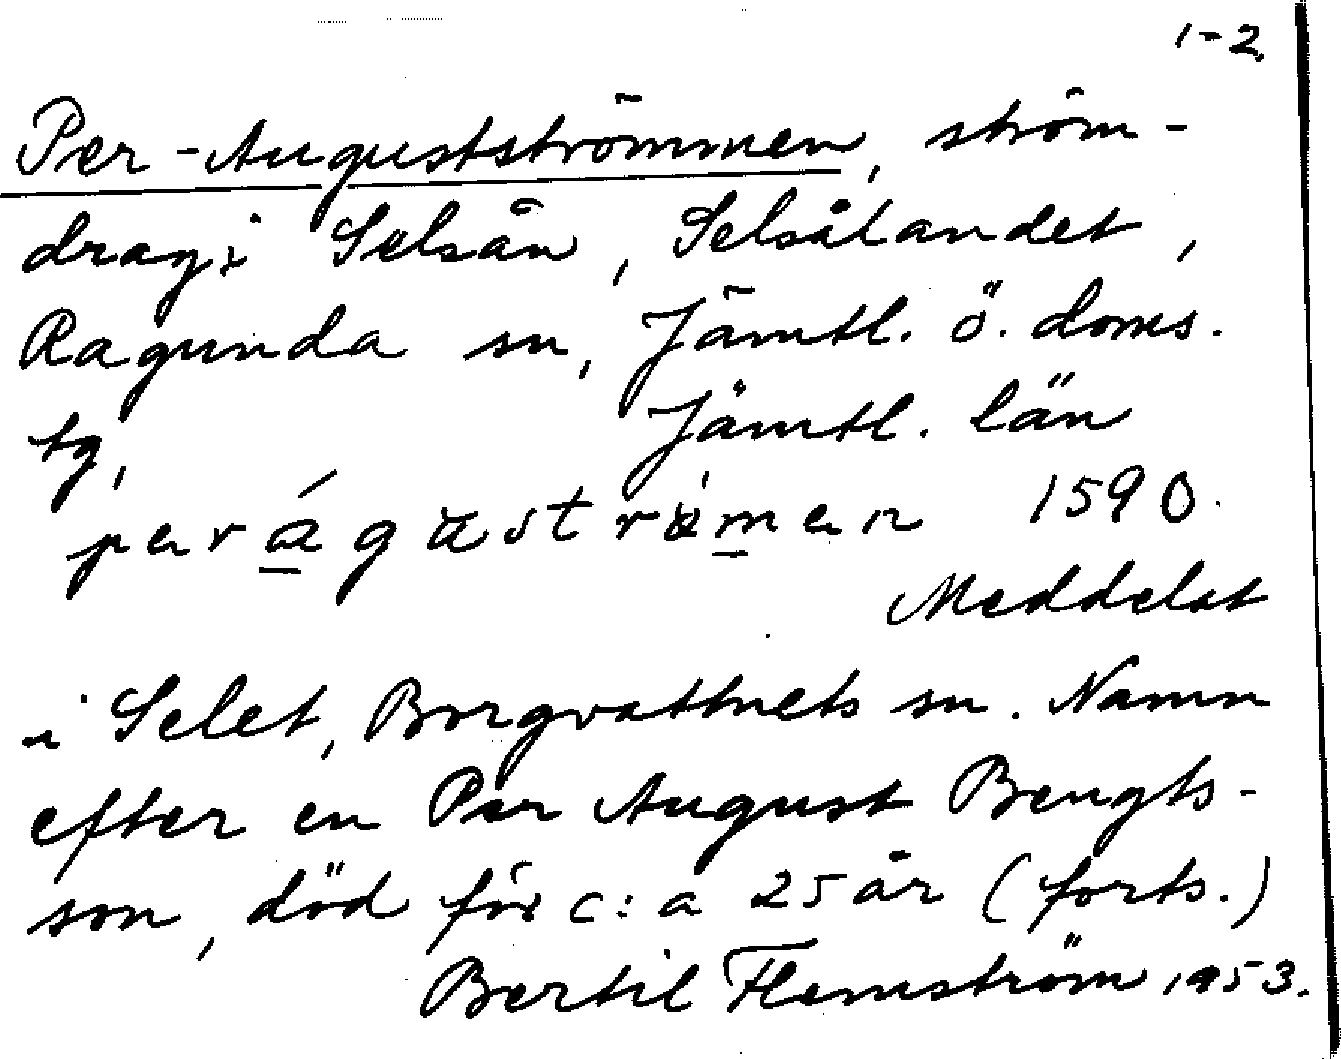 1-2
Per-Augustströmmen, ström-
drag i Selsån, Selsålandet,
Ragunda sn, Jämtl. ö. doms.
tg, Jämtl. län
1590.
Meddelat
i Selet, Borgvattnets sn. Namn
efter en Per August Bengts-
son, död för c:a 25 år (forts.)
Bertil Flemström 1953.